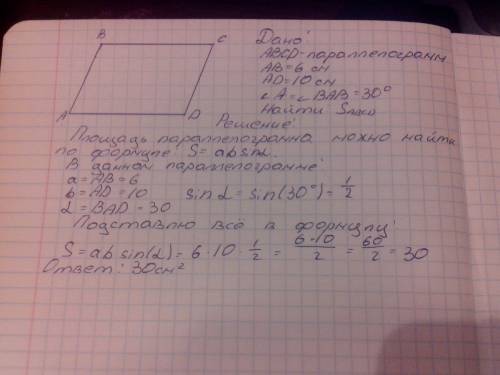 B
C
A
D
Дано:
ABCD-параллелограмм
AB=6 см
AD=10 см
∠A=∠BAB=30°
Найти S
Решение:
Площадь параллелограмма можно найти
по формуле: S=ab sinα.
В данном параллелограмме:
a=AB=6
b=AD=10 sin α = sin(30°) = 1/2
α=BAD=30
Подставлю всё в формулу:
S=ab sin(α) = 6·10·1/2 = 6·10/2 = 60/2 = 30
Ответ: 30см²